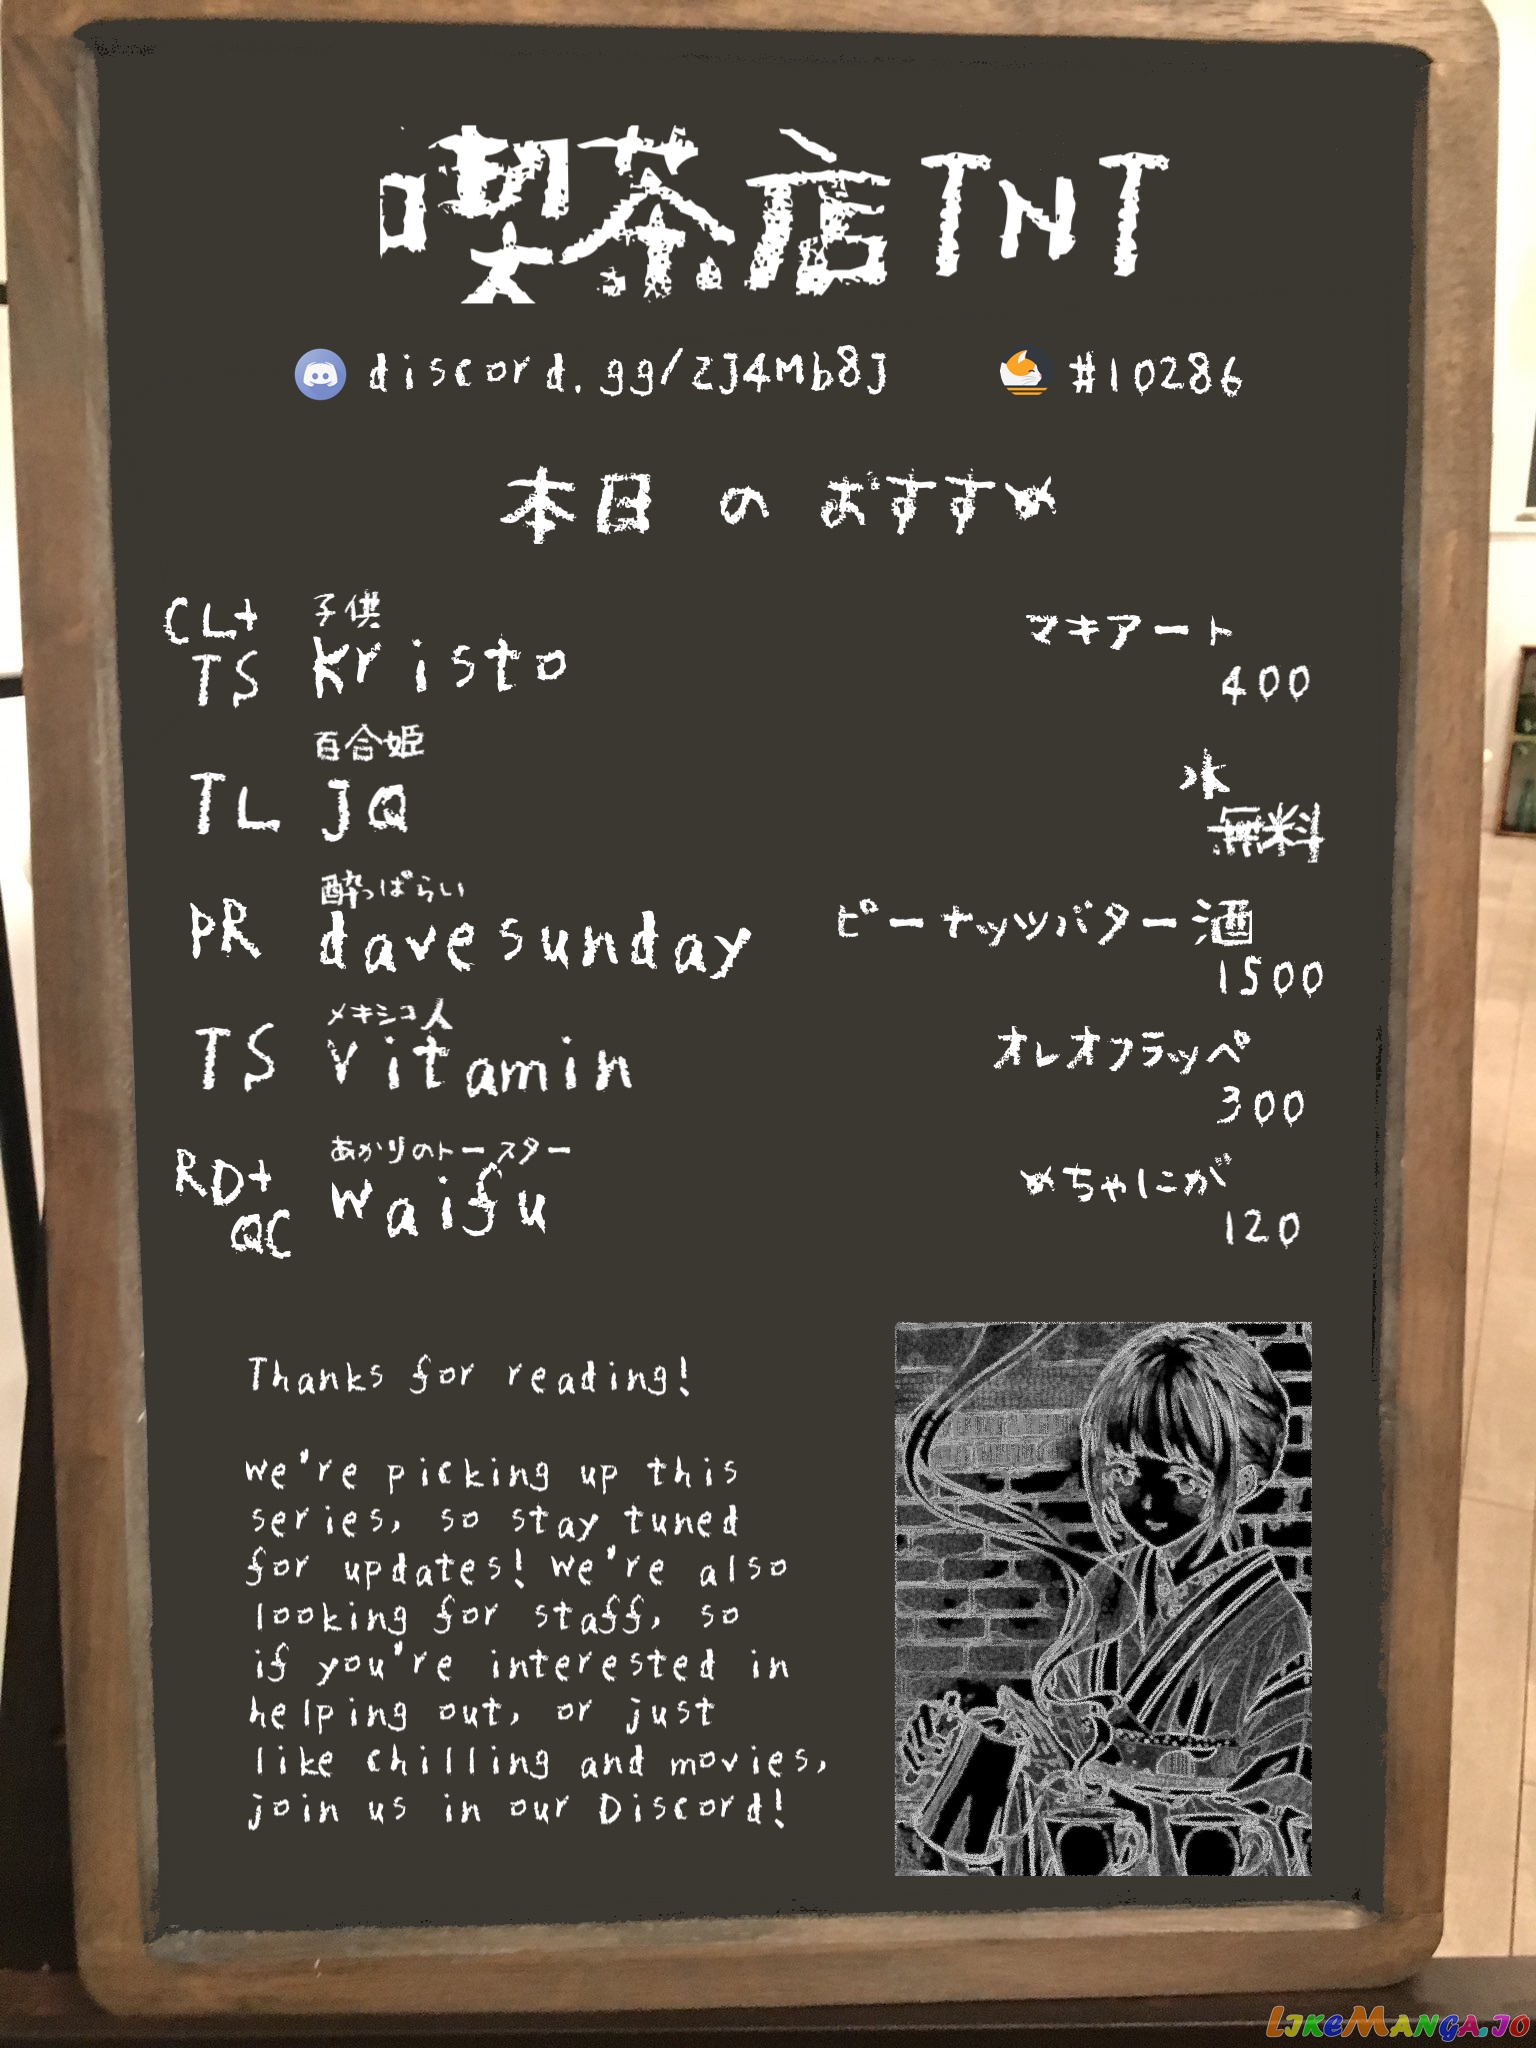 喫茶店TNT
discord.gg/ZJ4Mb8J #10286
本日のおすすめ
CL+
TS
子供
kristo
マキアート
400
TL
百合姫
JQ
水
無料
PR
酔っぱらい
davesunday
ピーナッツバター酒
1500
TS
メキシコ人
vitamin
オレオフラッペ
300
RD+
QC
あかりのトースター
waifu
めちゃにが
120
Thanks for reading!
we're picking up this
series, so stay tuned
for updates! we're also
looking for staff, so
if you're interested in
helping out, or just
like chilling and movies,
join us in our Discord!
LIKEMANGA.IO